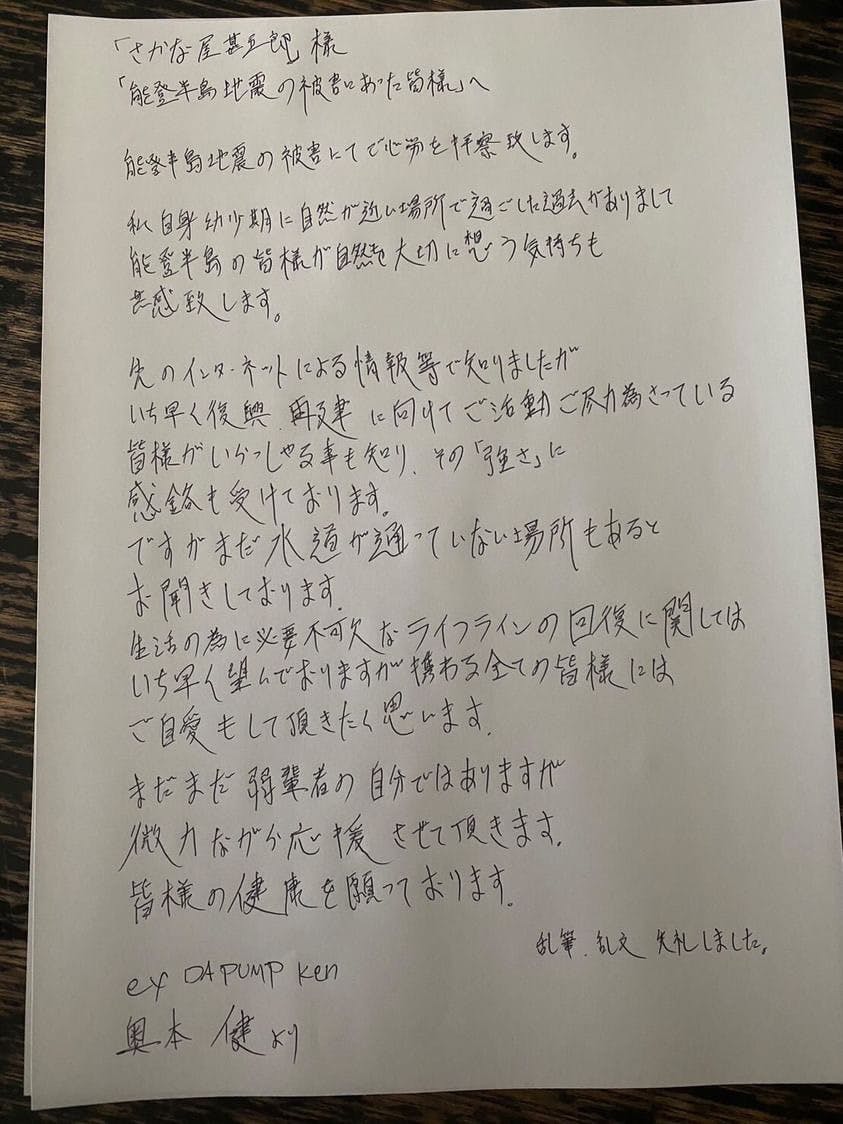 「さかな屋甚五郎」様
「能登半島地震の被害にあった皆様」へ
能登半島地震の被害にてご心労を拝察致します。
私自身幼少期に自然が近い場所で過ごした過去がありまして
能登半島の皆様が自然を大切に想う気持ちも
共感致します。
先のインターネットによる情報等で知りましたが
いち早く復興、再建に向けてご活動ご尽力為さっている
皆様がいらっしゃる事も知り、その「強さ」に
感銘も受けております。
ですがまだ水道が通っていない場所もあると
お聞きしております。
生活の為に必要不可欠なライフラインの回復に関しては
いち早く望んでおりますが携わる全ての皆様には
ご自愛もして頂きたく思います。
まだまだ弱輩者の自分ではありますが
微力ながら応援させて頂きます。
皆様の健康を願っております。
乱筆、乱文 失礼しました。
ex DA PUMP Ken
奥本 健より